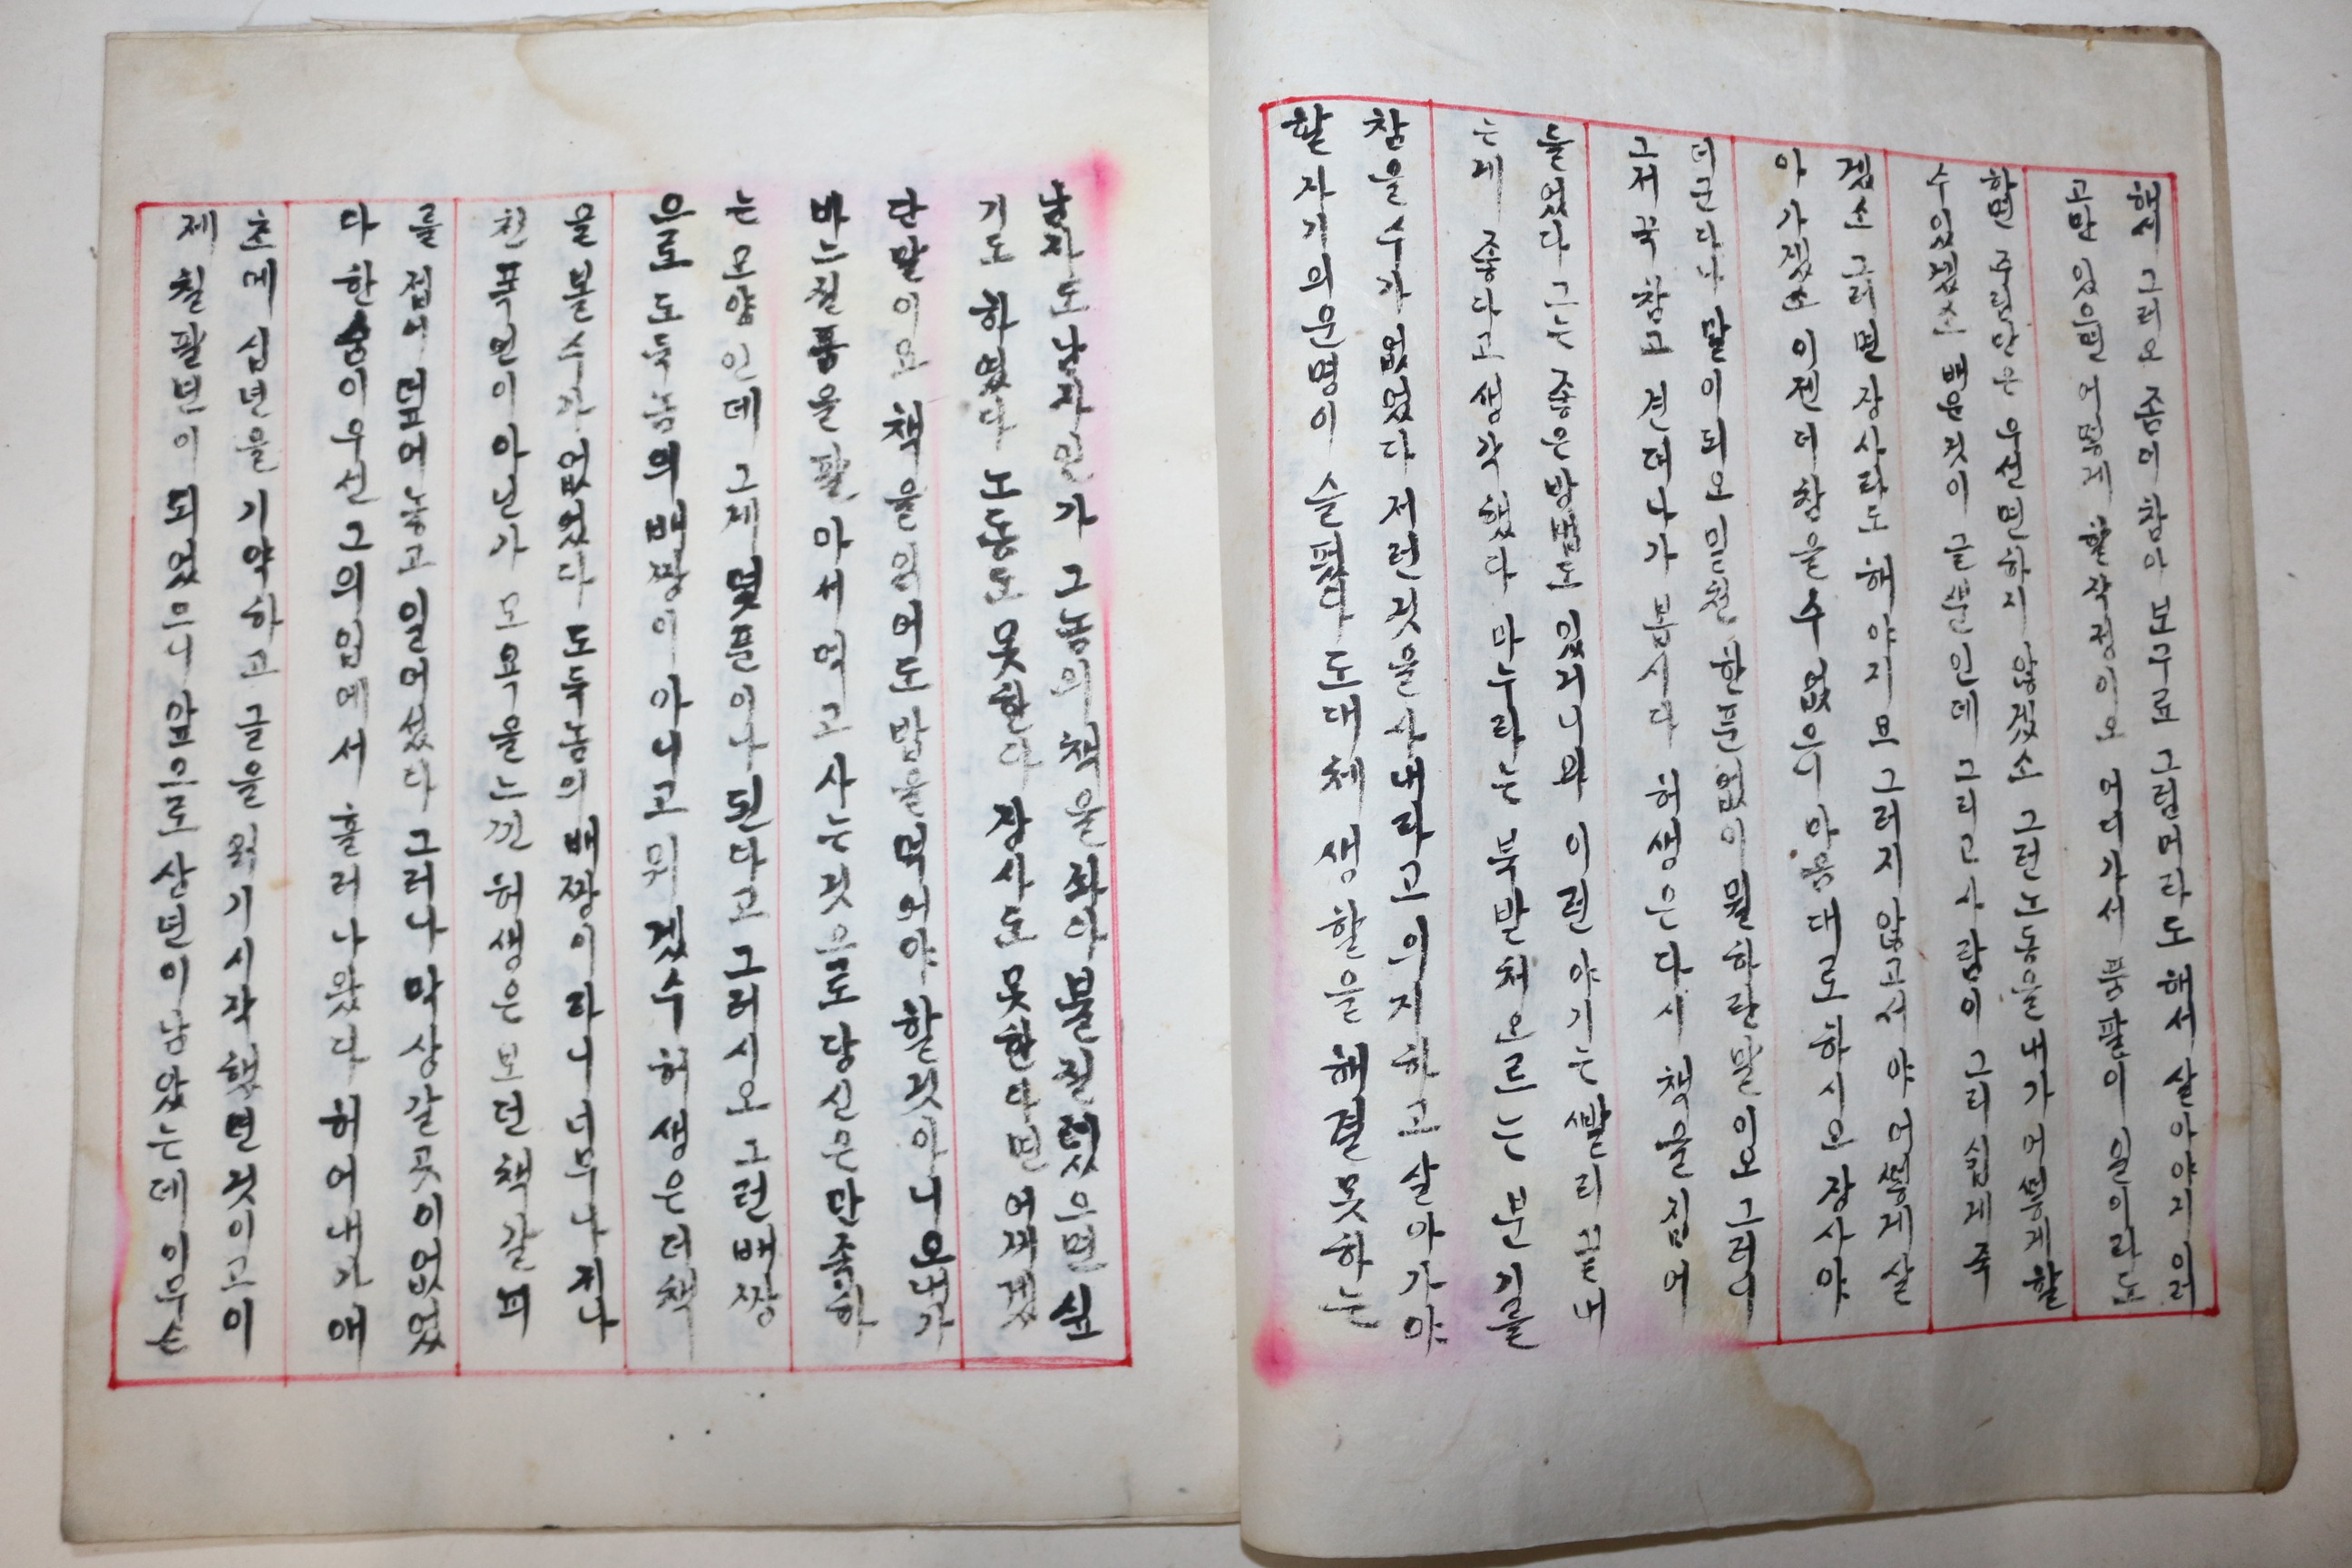 해서 그려오 좀의 참아 보구료 그럼머라도 해서 살아야지 이러
고만 있으면 어떻게 할작정이오 어디가서 품팔이 일이라도
하면 주린닭은 우선 면하지 않겠소 그런노동을 내가 어떻게 할
수있겠소 배운것이 글뿐인데 그리고 사람이 그리 쉽게 죽
겠소 그러면 장사라도 해야지요 그러지 않고서야 어떻게 살
아가겠소 이젠 더 참을 수 없으니 마음대로 하시오 장사야
더군다나 말이 되오 밑천 한푼없이 뭘하란 말이오 그러니
그저 꾹 참고 견디다가 봅시다 허생은 다시 책을 집어
들었다 그는 좋은 방법도 있거니와 이런 야기는 빨리 끝내
는게 좋다고 생각했다 마누라는 북받쳐 오르는 분기를
참을 수가 없었다 저런것을 사내라고 의지하고 살아가야
할 자기의 운명이 슬펐다 도대체 생활을 해결 못하는
남자도 남자인가 그놈의 책을 좌악 불질렀으면 싶
기도 하였다 노동도 못한다 장사도 못한다면 어찌겠
단말이요 책을 읽어도 밥을 먹어야 할것아니요 내가
바느질품을 팔아서 먹고 사는것으로 당신은 만족하
는 모양인데 그게 몇푼이나 된다고 그러시오 그런배짱
으로 도둑놈의 배짱이 아니고 뭐겠수 허생은 더 책
을 볼수가 없었다 도둑놈의 배짱이라니 너무나 지나
친 폭언이 아닌가 모욕을 느낀 허생은 보던 책갈피
를 접어 덮어놓고 일어섰다 그러나 막상 갈곳이 없었
다 한숨이 우선 그의 입에서 흘러나왔다 허어 내가 애
초에 십년을 기약하고 글을 읽기 시작했던 것이고 이
제 칠팔년이 되었으니 앞으로 삼년이 남았는데 이우슨